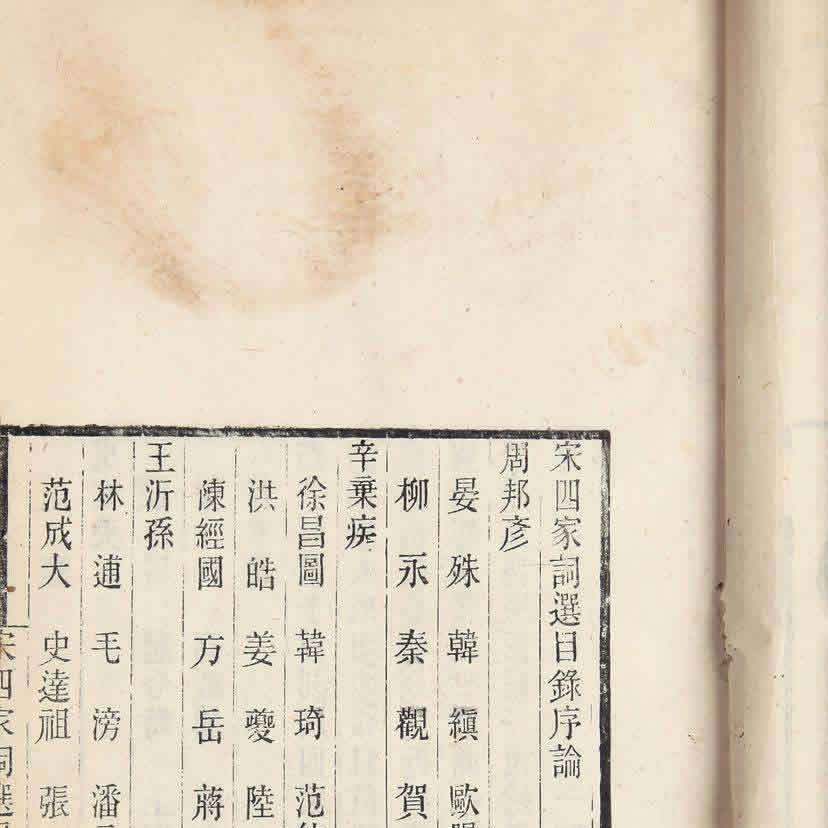 宋四家詞選目錄序論
周邦彥
晏殊 韓縝 歐
柳永 秦觀 賀
辛棄疾
徐昌圖 韓琦 范
洪皓 姜夔 陸
陳經國 方岳 蔣
王沂孫
林逋 毛滂 潘
范成大 史達祖 張
宋四家詞選